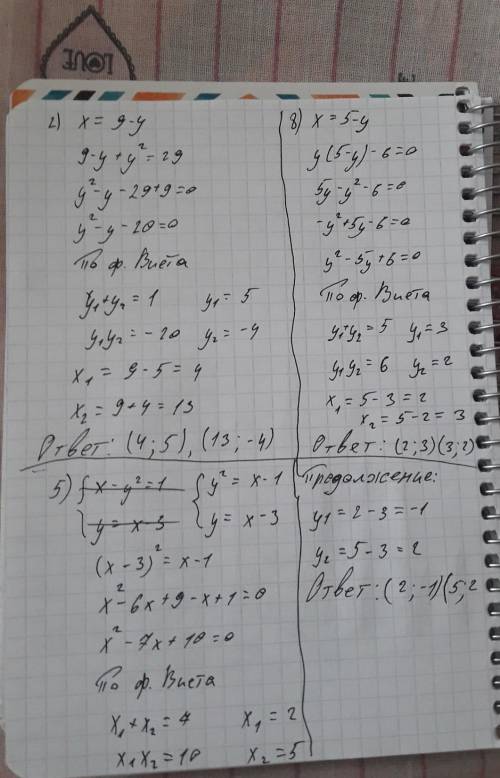 LOVE
2) x = 9-y
9-y+y² = 29
y²-y-29+9=0
y²-y-20=0
По ф. Виета
y₁+y₂ = 1 y₁ = 5
y₁y₂ = -20 y₂ = -4
x₁ = 9-5 = 4
x₂ = 9+4 = 13
Ответ: (4;5), (13;-4)
8) x = 5-y
y(5-y)-6=0
5y-y²-6=0
-y²+5y-6=0
y²-5y+6=0
По ф. Виета
y₁+y₂ = 5 y₁ = 3
y₁y₂ = 6 y₂ = 2
x₁ = 5-3 = 2
x₂ = 5-2 = 3
Ответ: (2;3)(3;2)
5) { x-y²=1 { y² = x-1
{ y = x-3 { y = x-3
(x-3)² = x-1
x²-6x+9-x+1=0
x²-7x+10=0
По ф. Виета
x₁+x₂ = 7 x₁ = 2
x₁x₂ = 10 x₂ = 5
Продолжение:
y₁ = 2-3 = -1
y₂ = 5-3 = 2
Ответ: (2;-1)(5;2